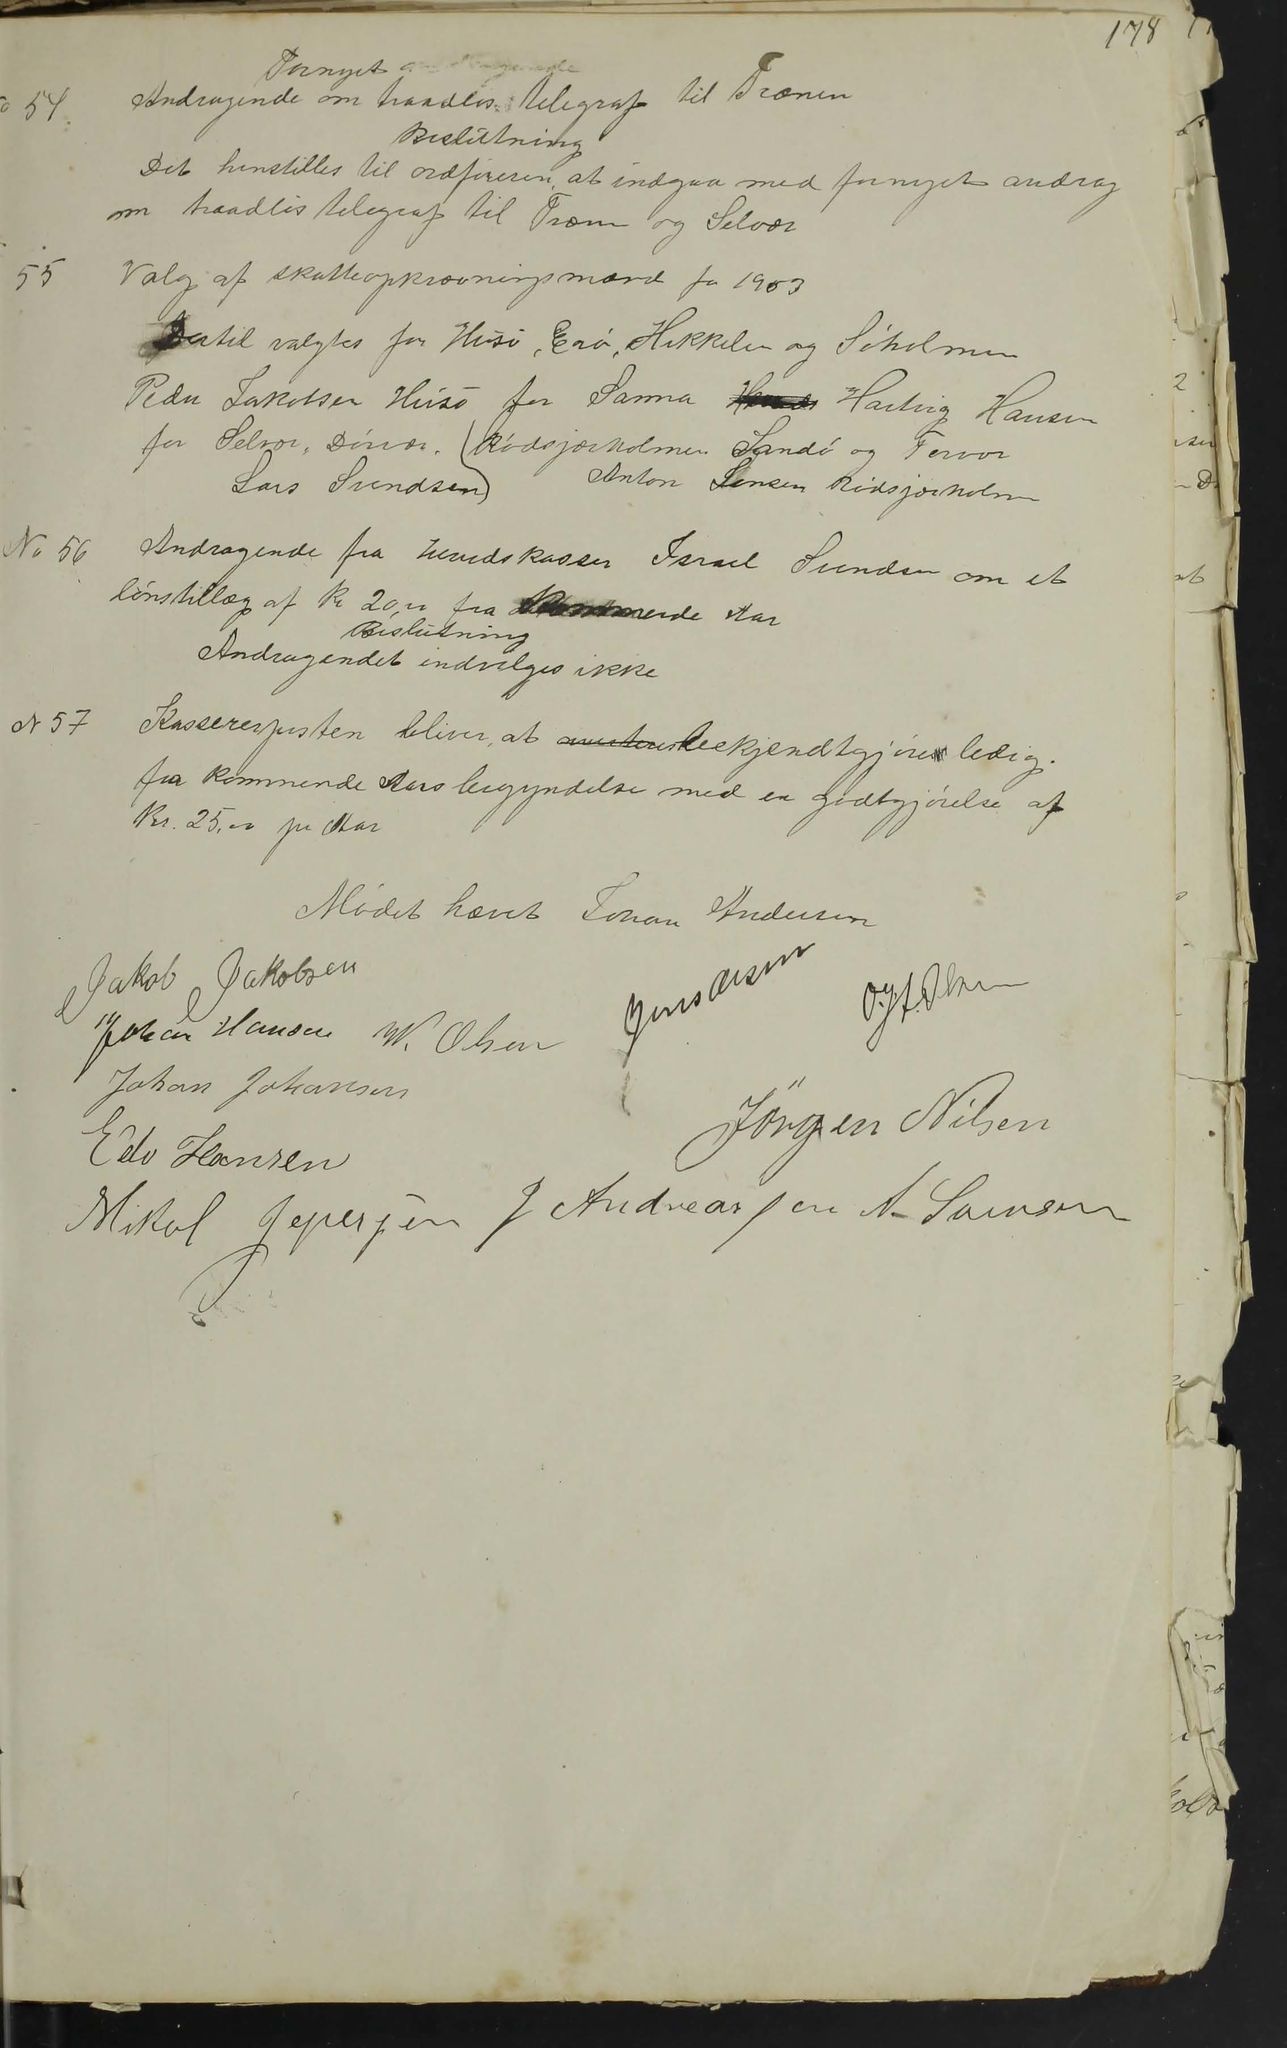 178
Fornyet
54 Andragende om traadløs telegraf til Trænen
Beslutning
Det henstilles til ordføreren, at indgaa med fornyet andrag
om traadløs telegraf til Træn og Selvær
55 Valg af skatteopkrævningsmænd for 1903
Dertil valgtes for Husø, Enø, Hikkelen og Søholmen
Peder Jakobsen Husø for Sanna Hartvig Hansen
for Selvær, Dørvær. Rødsjærholmen Sandø og Fervær
Lars Svendsen) Anton Jensen Rødsjærholmen
No 56 Andragende fra herredskasser Israel Svendsen om et
lønstillæg af kr 20,00 fra kommende Aar
Beslutning
Andragendet indvilges ikke
N 57 Kassererposten bliver, at beskjendtgjøres ledig.
fra kommende Aars begyndelse med en godtgjørelse af
Kr. 25,00 pr Aar
Mødet hævet Johan Andersen
Jakob Jakobsen
Johan Hansen W. Olsen Jens Olsen
Johan Johansen
Jörgen Nilsen
Edv Hansen
Mikal Jepersen J Andreassen A Svensen